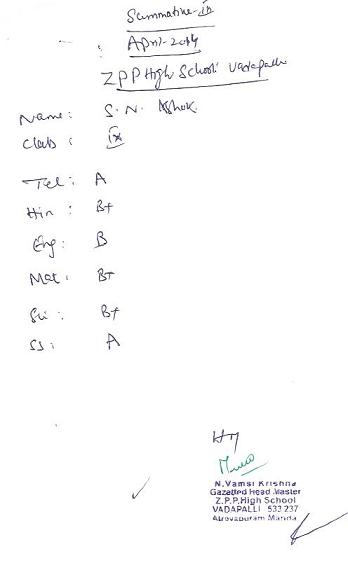 Summative - III
: April-2014
ZPP High School Vadapalli
Name: S. N. Ashok.
Class: IX
Tel: A
Hin: B+
Eng: B
Mat: B+
Sci: B+
SS: A
HM
N.Vamsi Krishna
Gazatted Head Master
Z.P.P.High School
VADAPALLI 533 237
Atreyapuram Mandal